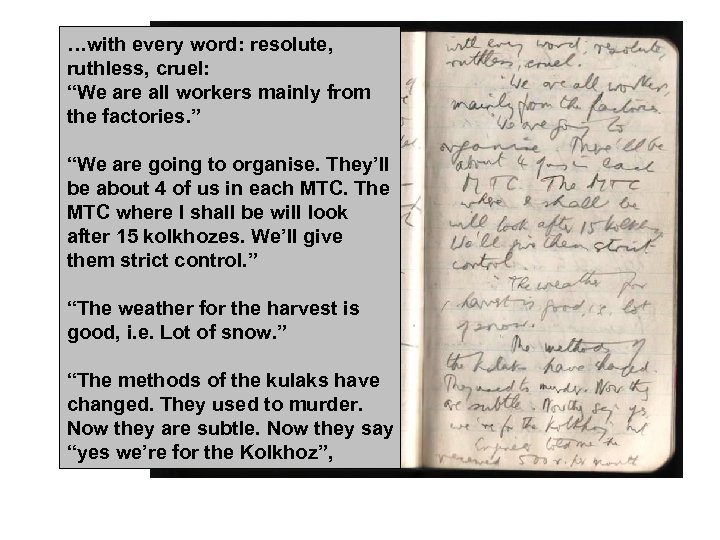 …with every word: resolute,
ruthless, cruel:
“We are all workers mainly from
the factories. ”
“We are going to organise. They’ll
be about 4 of us in each MTC. The
MTC where I shall be will look
after 15 kolkhozes. We’ll give
them strict control. ”
“The weather for the harvest is
good, i.e. Lot of snow. ”
“The methods of the kulaks have
changed. They used to murder.
Now they are subtle. Now they say
“yes we’re for the Kolkhoz”,
with every word: resolute,
ruthless, cruel.
"We are all workers,
mainly from the factories.
"We are going to
organise. There'll be
about 4 of us in each
MTC. The MTC
where I shall be
will look after 15 kolkhozy.
We'll give them strict
control.
"The weather for
harvest is good, i.e. lot
of snow.
"The methods of
the kulaks have changed.
They used to murder. Now they
are subtle. Now they say yes,
we're for the Kolkhoz, but
told me he
received 500 r. per month